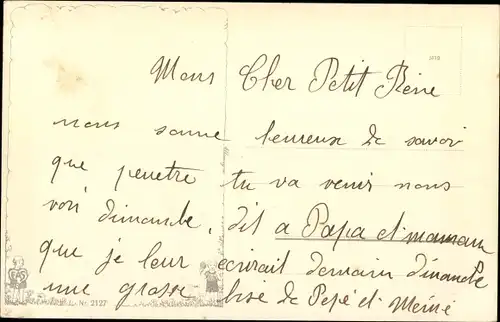 Mons Cher Petit Réne
nous somme heureuse de savoir
que peuetre tu va venir nous
voir dimanche, dit a Papa et maman
que je leur écrirait demain dimanche
une grosse bise de Pépé et Mémé
Nr. 2127